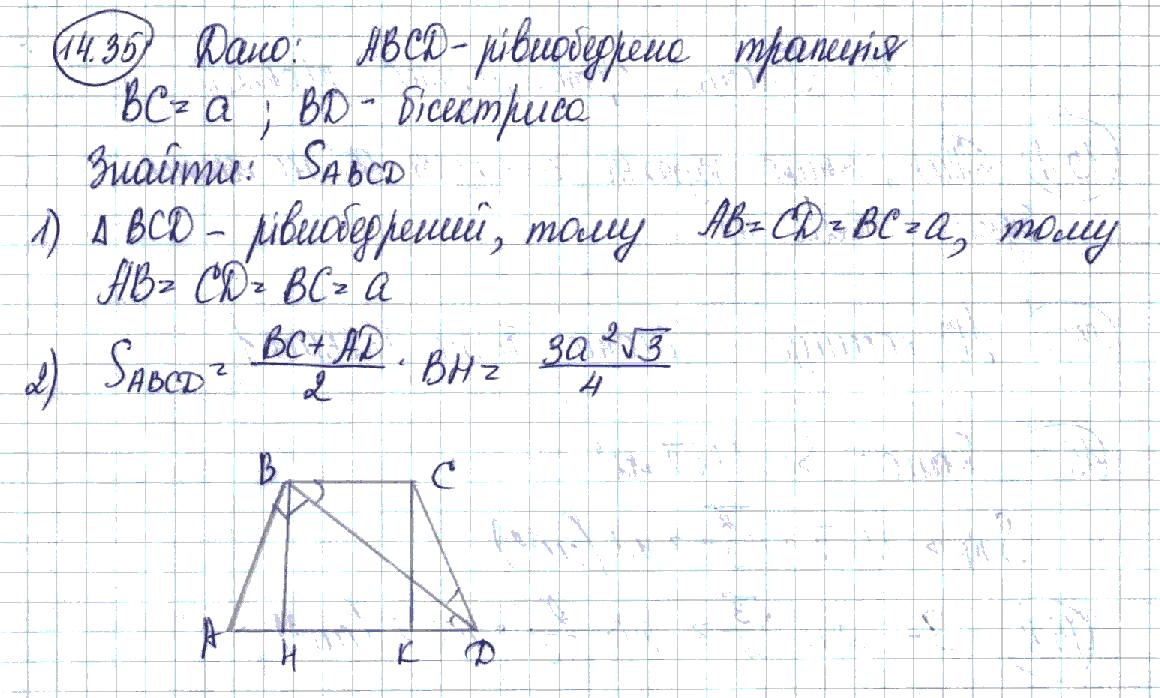 14.35 Дано: ABCD - рівнобедрена трапеція
BC = a ; BD - бісектриса
Знайти: S ABCD
1) Δ BCD - рівнобедрений, тому AB = CD = BC = a, тому
AB = CD = BC = a
2) S ABCD = (BC + AD)/2 · BH = 3a²√3/4
B C
A H K D